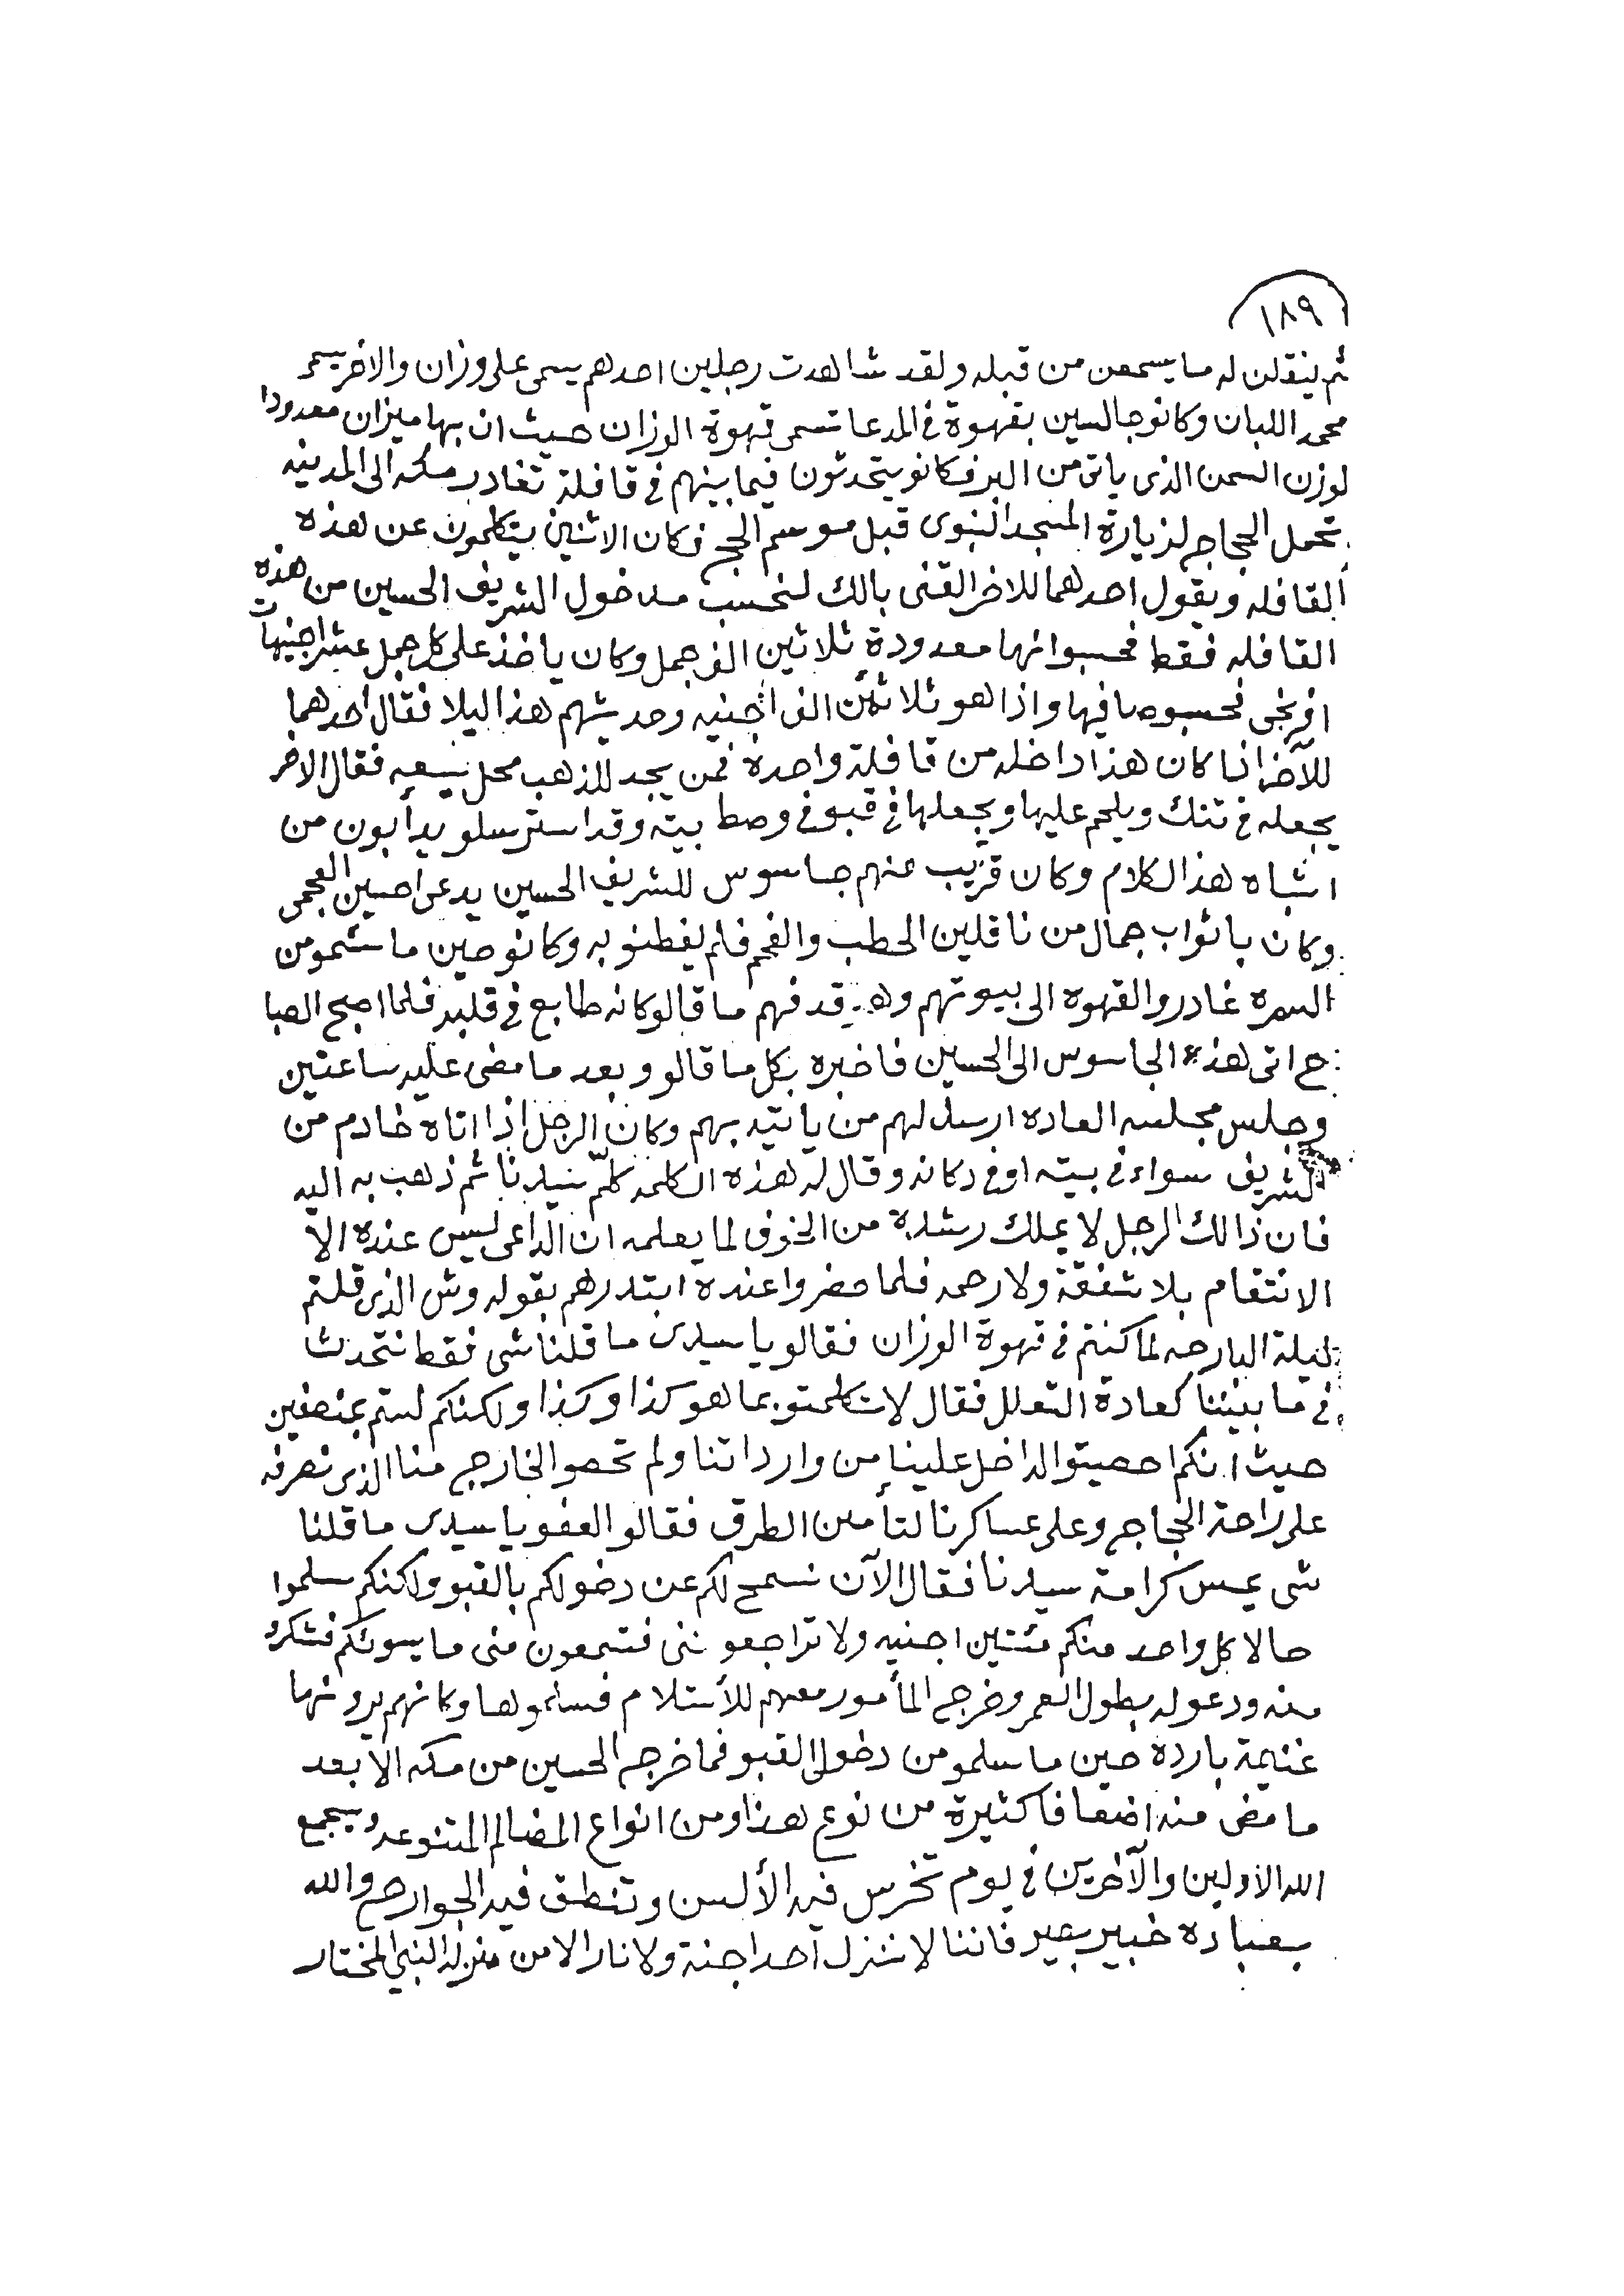 ١٨٩
ثم ينقلن له ما يسمعن من قبله ولقد شاهدت رجلين احدهم يسمى على وزان والاخر يسمى
محمد اللبان وكانو جالسين بقهوة في المدعا تسمى قهوة الوزان حيث ان بها ميزان معدودا
لوزن السمن الذى ياتى من البر فكانو يتحدثون فيما بينهم في قافلة تغادر مكه الى المدينه
تحمل الحجاج لزيارة المسجد النبوى قبل موسم الحج فكان الاثنين يتكلمون عن هذه
القافله ويقول احدهما للاخر القنى بالك لنحسب مدخول الشريف الحسين من هذه
القافله فقط فحسبوا انها معدودة ثلاثين الف جمل وكان ياخذ على كل جمل عشر اجنيهات
افرنجى فحسبو ما فيها واذا هو ثلاثمئن الف اجنيه وحديثهم هذا ليلا فقال احدهما
للآخر اذا كان هذا داخله من قافلة واحدة فمن يجد للذهب محل يسعه فقال الاخر
يجعله في تنك ويلحم عليها ويجعلها في قبو في وصط بيته وقد استرسلو يدأبون من
اشباه هذا الكلام وكان قريب منهم جاسوس للشريف الحسين يدعى احسين العجمى
وكان باثواب جمال من ناقلين الحطب والفحم فلم يفطنو به وكانو حين ما سئمو من
السمره غادرو القهوه الى بيوتهم وهو قد فهم ما قالو كانه طابع في قلبه فلما اصبح الصبا
ح اتى هذه الجاسوس الى الحسين فاخبره بكل ما قالو وبعد ما مضى عليه ساعتين
وجلس مجلسه العاده ارسل لهم من ياتيه بهم وكان الرجل اذا اتاه خادم من
الشريف سواء في بيته او في دكانه وقال له هذه الكلمه كلّم سيدنا ثم ذهب به اليه
فان ذالك الرجل لا يملك رشده من الخوف لما يعلمه ان الداعى ليس عنده الا
الانتقام بلا شفقة ولا رحمه فلما حضروا عنده ابتدرهم بقوله وش الذى قلتم
ليلة البارحه لما كنتم في قهوة الوزان فقالو يا سيدى ما قلنا شى فقط نتحدث
في ما بيننا كعادة التعلل فقال لا تكلمتو بما هو كذا وكذا ولكنكم لستم بمنصفين
حيث انكم احصيتو الداخل علينا من وارداتنا ولم تحصو الخارج منا الذى نصرفه
على راحة الحجاج وعلى عساكرنا لتأمين الطرق فقالو العفو يا سيدى ما قلنا
شى يمس كرامة سيدنا فقال الآن نسمح لكم عن دخولكم بالقبو ولكنكم سلموا
حالا كل واحد منكم مئتين اجنيه ولا تراجعو ننى فتسمعون منى ما يسوئكم فشكرو
منه ودعو له بطول العمر وخرج المأمور معهم للأستلام فسلموها وكانهم يرو نها
غنيمة بارده حين ما سلمو من دخول القبو فما خرج الحسين من مكه الا بعد
ما مضى منه اضعافا كثيرة من نوع هذا ومن انواع المضالم المتنوعه وسيجمع
الله الاولين والآخرين في يوم تخرس فيه الألسن وتنطق فيه الجوارح والله
بعباده خبير بصير فاننا لا ننزل احدا جنة ولا نارا الا من منزله النبي المختار